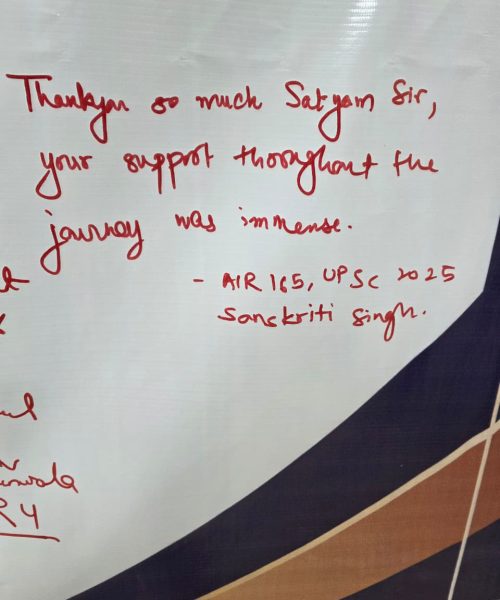 Thankyou so much Satyam Sir,
your support throughout the
journey was immense.
- AIR 165, UPSC 2025
Sanskriti Singh.
R 4